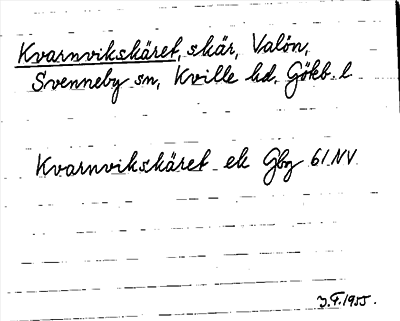 Kvarnvikskäret, skär, Valön,
Svenneby sn, Kville hd, Götb. l
Kvarnvikskäret ek Gbg 61 NV
1955.